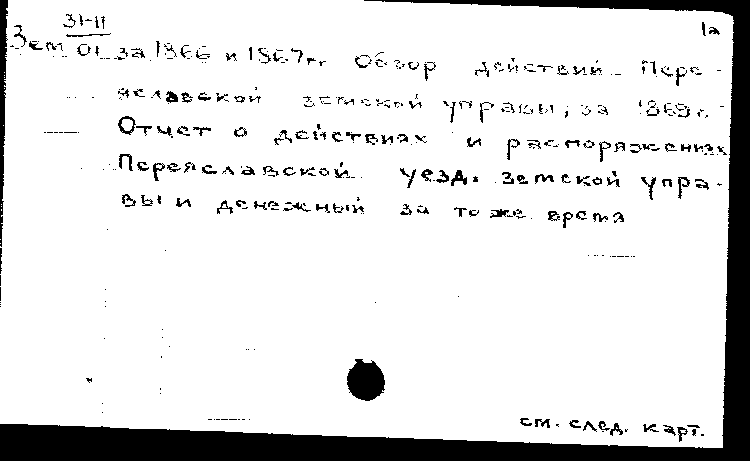 31-11
1а
Зем 01 за 1866 и 1867 гг Обзор действий Пере-
яславской земской управы; за 1869 г.
Отчет о действиях и распоряжениях
Переяславской уезд. земской упра-
вы и денежный за то же время
см. след. карт.